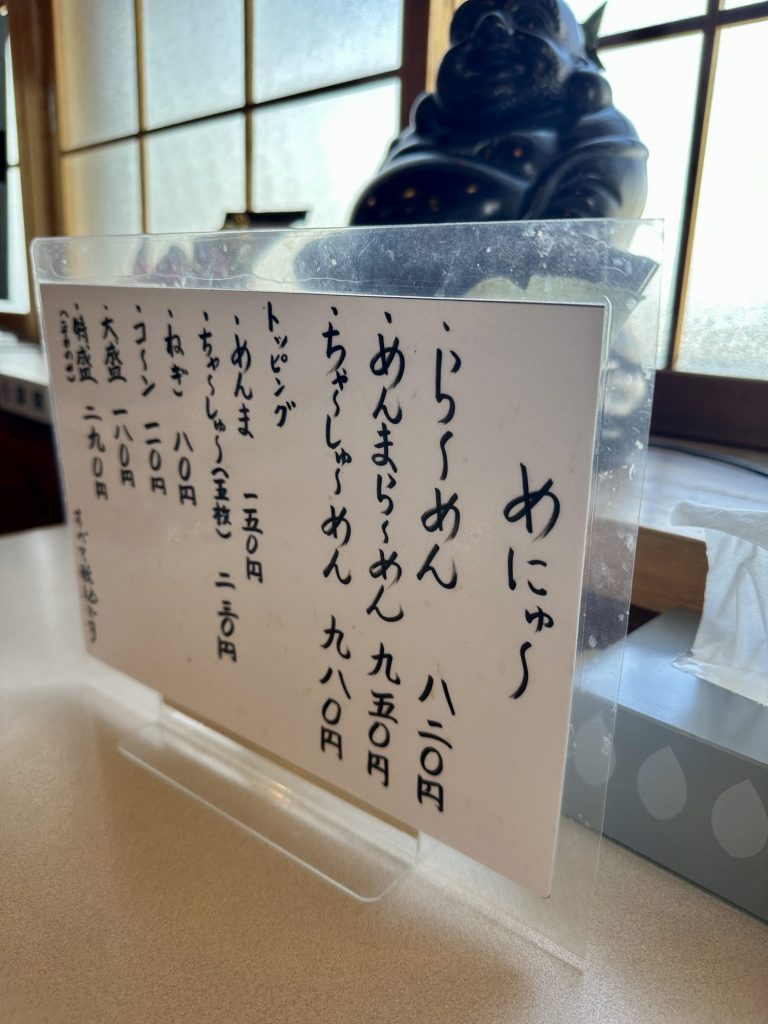 めにゅ〜
・らーめん 八二〇円
・めんまらーめん 九五〇円
・ちゃーしゅーめん 九八〇円
トッピング
・めんま 一五〇円
・ちゃーしゅー(五枚) 二三〇円
・ねぎ 八〇円
・コーン 一二〇円
・大盛 一八〇円
・特盛 二九〇円
すべて税込です